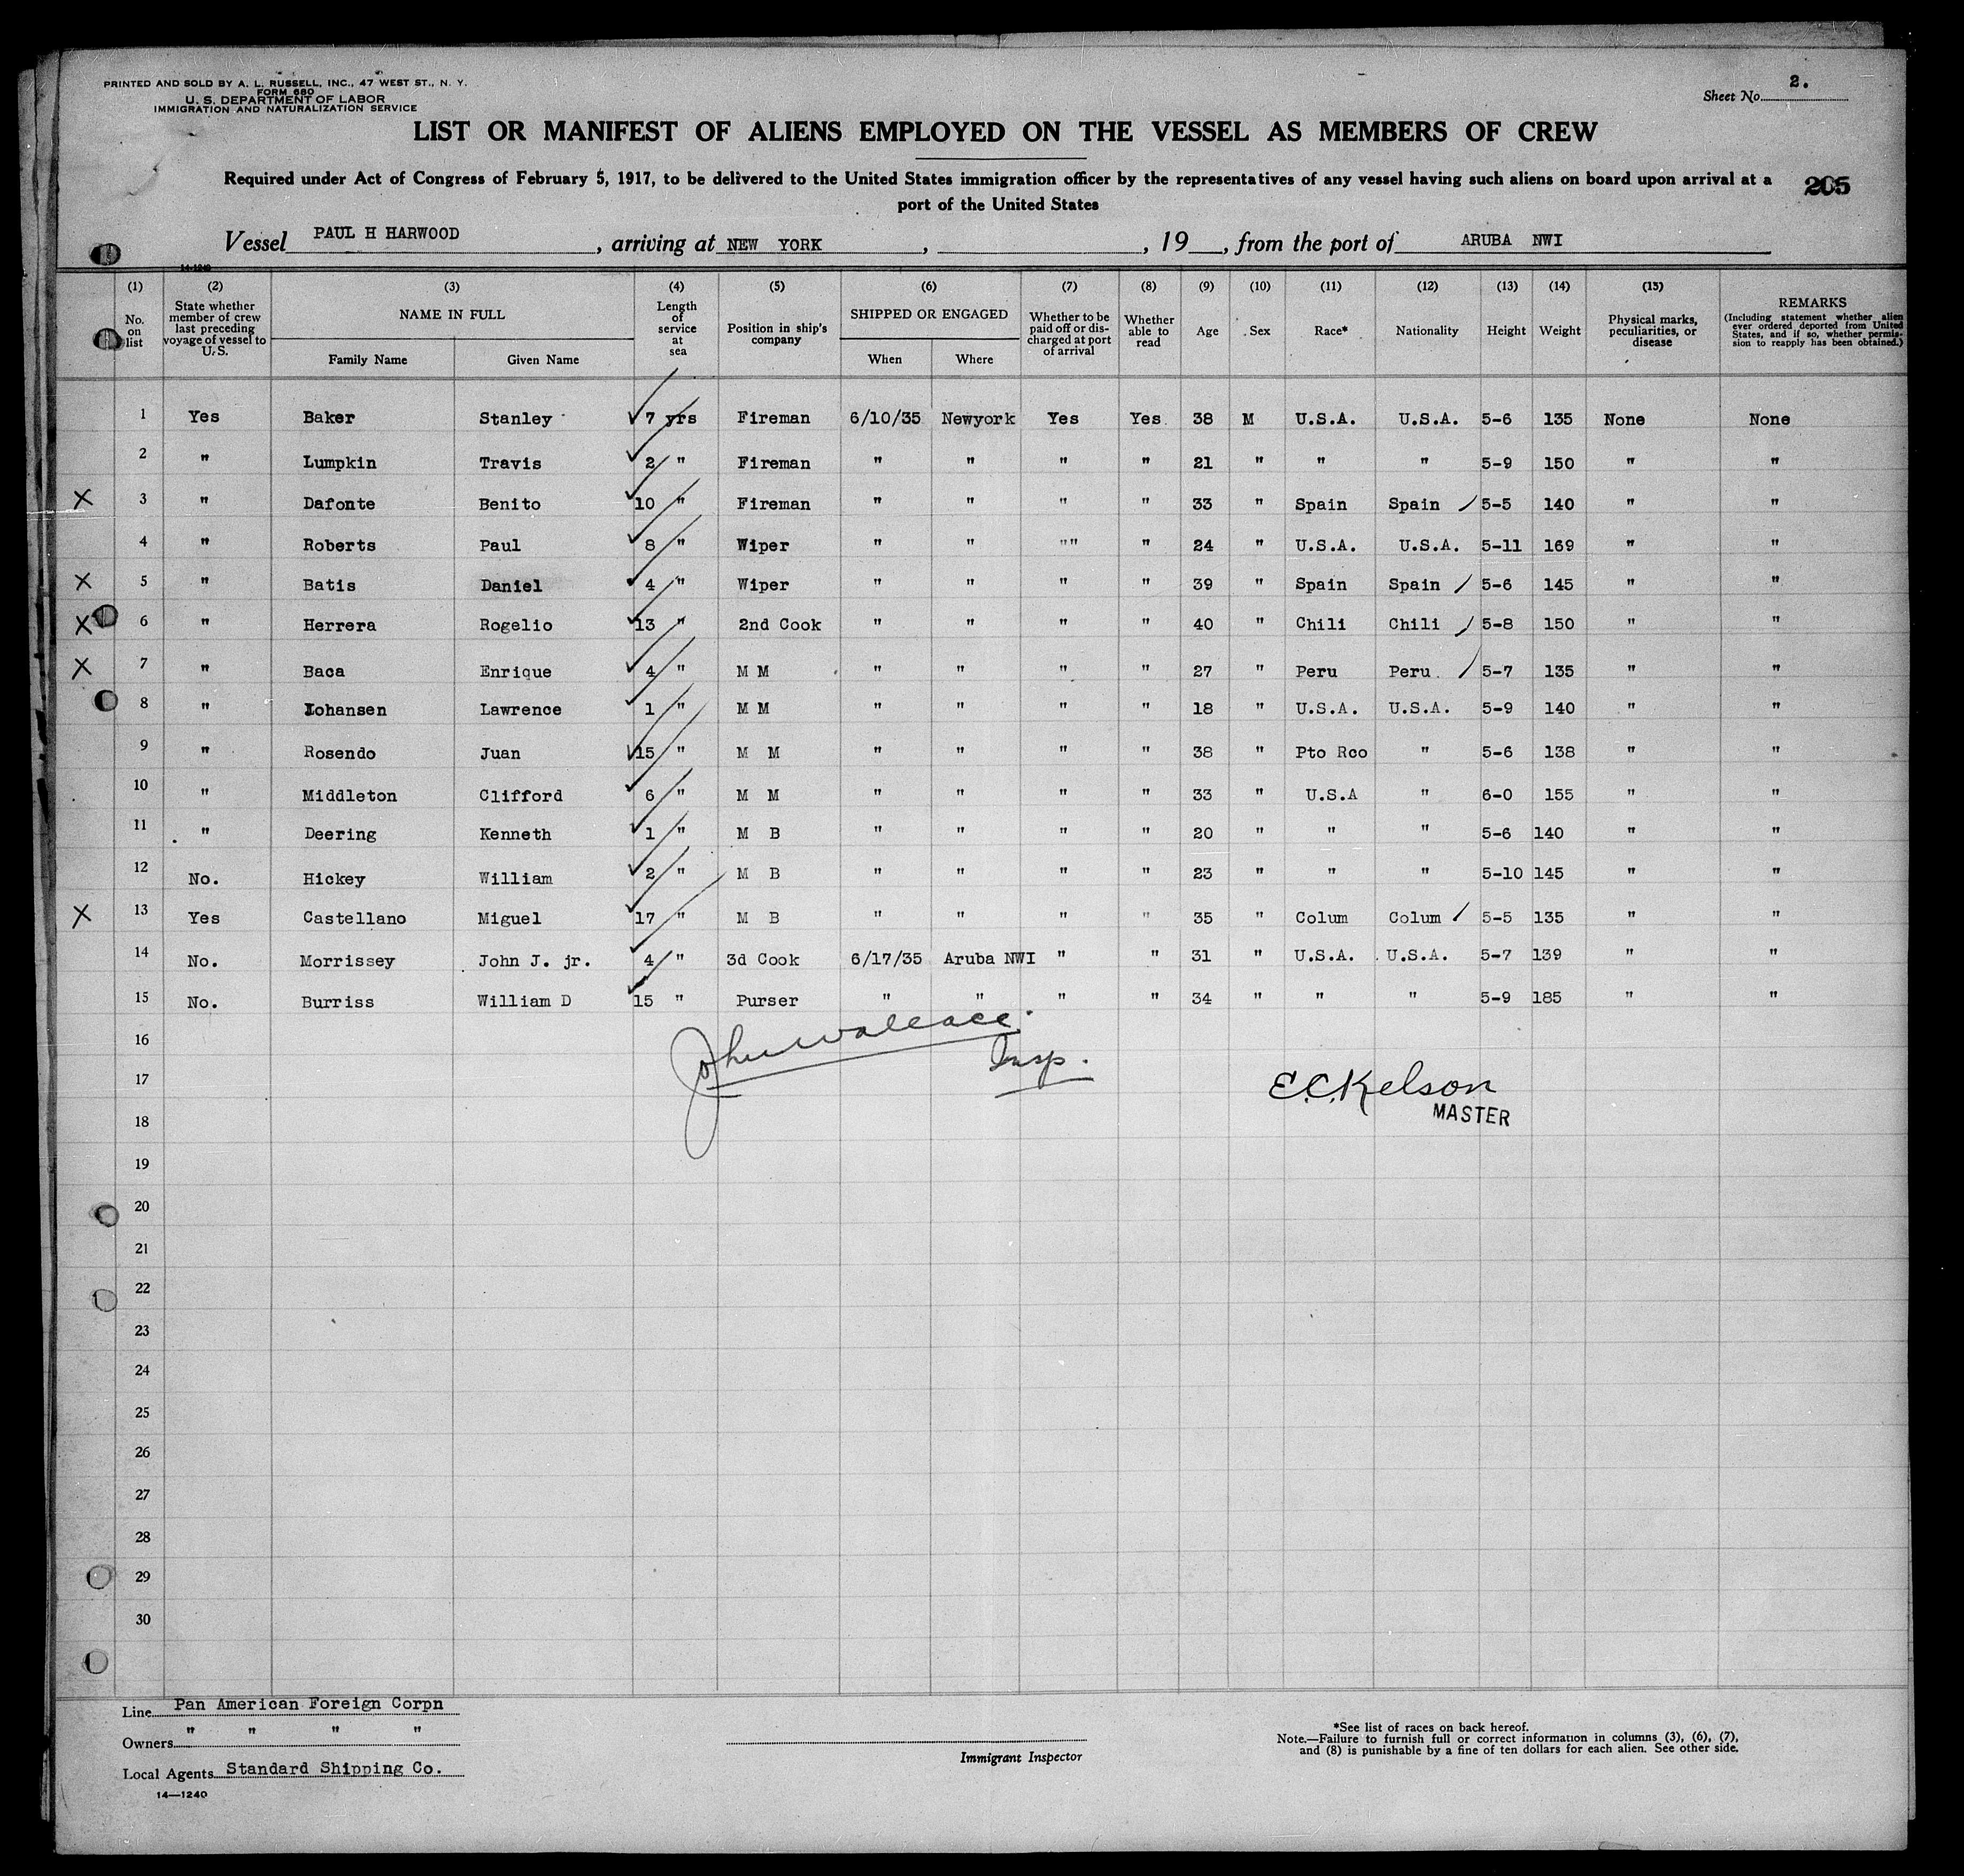 PRINTED AND SOLD BY A. L. RUSSELL, INC., 47 WEST ST., N. Y.
FORM 680
U. S. DEPARTMENT OF LABOR
IMMIGRATION AND NATURALIZATION SERVICE
Sheet No. 2.
LIST OR MANIFEST OF ALIENS EMPLOYED ON THE VESSEL AS MEMBERS OF CREW
Required under Act of Congress of February 5, 1917, to be delivered to the United States immigration officer by the representatives of any vessel having such aliens on board upon arrival at a
port of the United States
205
Vessel PAUL H HARWOOD, arriving at NEW YORK, , 19 , from the port of ARUBA NWI
14-1240
(1) No. on list (2) State whether member of crew last preceding voyage of vessel to U.S. (3) NAME IN FULL Family Name Given Name (4) Length of service at sea (5) Position in ship's company (6) SHIPPED OR ENGAGED When Where (7) Whether to be paid off or discharged at port of arrival (8) Whether able to read (9) Age (10) Sex (11) Race* (12) Nationality (13) Height (14) Weight (15) Physical marks, peculiarities, or disease REMARKS (Including statement whether alien ever ordered deported from United States, and if so, whether permission to reapply has been obtained.)
1 Yes Baker Stanley ✓ 7 yrs Fireman 6/10/35 Newyork Yes Yes 38 M U.S.A. U.S.A. 5-6 135 None None
2 " Lumpkin Travis ✓ 2 " Fireman " " " " 21 " " " 5-9 150 " "
X 3 " Dafonte Benito ✓ 10 " Fireman " " " " 33 " Spain Spain / 5-5 140 " "
4 " Roberts Paul ✓ 8 " Wiper " " "" " 24 " U.S.A. U.S.A. 5-11 169 " "
X 5 " Batis Daniel ✓ 4 " Wiper " " " " 39 " Spain Spain / 5-6 145 " "
X 6 " Herrera Rogelio ✓ 13 " 2nd Cook " " " " 40 " Chili Chili / 5-8 150 " "
X 7 " Baca Enrique ✓ 4 " M M " " " " 27 " Peru Peru / 5-7 135 " "
8 " Iohansen Lawrence ✓ 1 " M M " " " " 18 " U.S.A. U.S.A. 5-9 140 " "
9 " Rosendo Juan ✓ 15 " M M " " " " 38 " Pto Rco " 5-6 138 " "
10 " Middleton Clifford ✓ 6 " M M " " " " 33 " U.S.A " 6-0 155 " "
11 " Deering Kenneth ✓ 1 " M B " " " " 20 " " " 5-6 140 " "
12 No. Hickey William ✓ 2 " M B " " " " 23 " " " 5-10 145 " "
X 13 Yes Castellano Miguel ✓ 17 " M B " " " " 35 " Colum Colum / 5-5 135 " "
14 No. Morrissey John J. jr. ✓ 4 " 3d Cook 6/17/35 Aruba NWI " " 31 " U.S.A. U.S.A. 5-7 139 " "
15 No. Burriss William D ✓ 15 " Purser " " " " 34 " " " 5-9 185 " "
16
John Wallace.
Insp.
17
E.C. Kelson
MASTER
18
19
20
21
22
23
24
25
26
27
28
29
30
Line Pan American Foreign Corpn
Owners " " " "
Local Agents Standard Shipping Co.
14—1240
Immigrant Inspector
*See list of races on back hereof.
Note.—Failure to furnish full or correct information in columns (3), (6), (7),
and (8) is punishable by a fine of ten dollars for each alien. See other side.